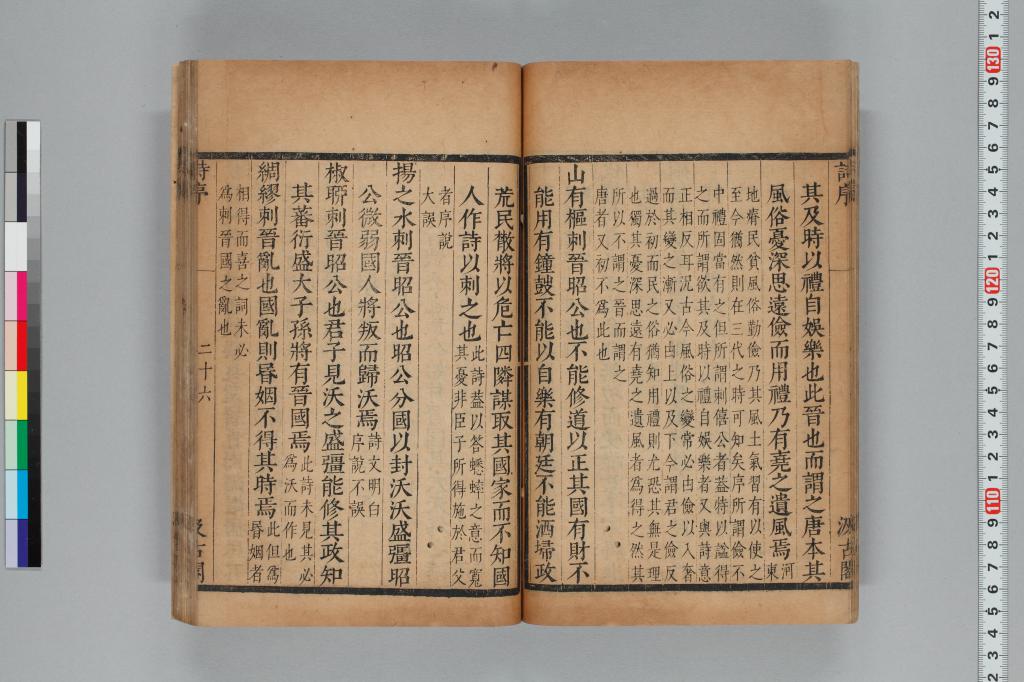 詩序
汲古閣
其及時以禮自娛樂也此晉也而謂之唐本其
風俗憂深思遠儉而用禮乃有堯之遺風焉
河
東
地瘠民貧風俗勤儉乃其風土氣習有以使之
至今猶然則在三代之時可知矣序所謂儉不
中禮固當有之但所謂刺僖公者蓋特以謚得
之而所謂欲其及時以禮自娛樂者又與詩意
正相反耳況古今風俗之變常必由儉以入奢
而其變之漸又必由上以及下今謂君之儉反
過於初而民之俗猶知用禮則尤恐其無是理
也獨其憂深思遠有堯之遺風者為得之然其
所以不謂之晉而謂之
唐者又初不為此也
山有樞刺晉昭公也不能修道以正其國有財不
能用有鐘鼓不能以自樂有朝廷不能洒埽政
荒民散將以危亡四隣謀取其國家而不知國
人作詩以刺之也
此詩蓋以答蟋蟀之意而寬
其憂非臣子所得施於君父
者序說
大誤
揚之水刺晉昭公也昭公分國以封沃沃盛彊昭
公微弱國人將叛而歸沃焉
詩文明白
序說不誤
椒聊刺晉昭公也君子見沃之盛彊能修其政知
其蕃衍盛大子孫將有晉國焉
此詩未見其必
為沃而作也
綢繆刺晉亂也國亂則昬姻不得其時焉
此但為
昬姻者
相得而喜之詞未必
為刺晉國之亂也
詩序
二十六
汲古閣
2 1 130 9 8 7 6 5 4 3 2 1 120 9 8 7 6 5 4 3 2 1 110 9 8 7 6 5 4 3 2